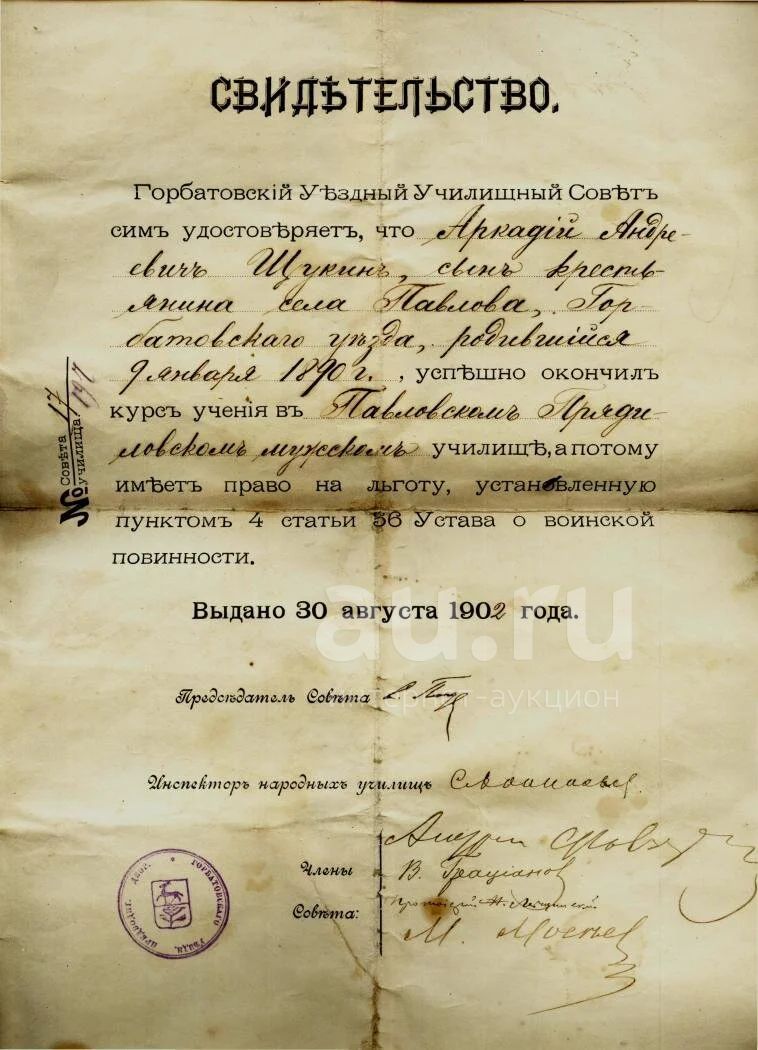 СВИДѢТЕЛЬСТВО.
Горбатовскій Уѣздный Училищный Совѣтъ
симъ удостовѣряетъ, что Аркадій Андре-
евичъ Щукинъ, сынъ кресть-
янина села Павлова, Гор-
батовскаго уѣзда, родившійся
9 января 1890 г., успѣшно окончилъ
курсъ ученія въ Павловскомъ Пряди-
ловскомъ мужскомъ училищѣ, а потому
имѣетъ право на льготу, установленную
пунктомъ 4 статьи 56 Устава о воинской
повинности.
№ Совѣта 17
училища 197
Выдано 30 августа 1902 года.
au.ru
интернет-аукцион
Предсѣдатель Совѣта
Инспекторъ народныхъ училищъ
Члены
Совѣта:
В. Граціановъ
Протоіерей Н.
М.
ПРЕДВОД. ДВОР. * ГОРБАТОВСКАГО УѢЗДА.